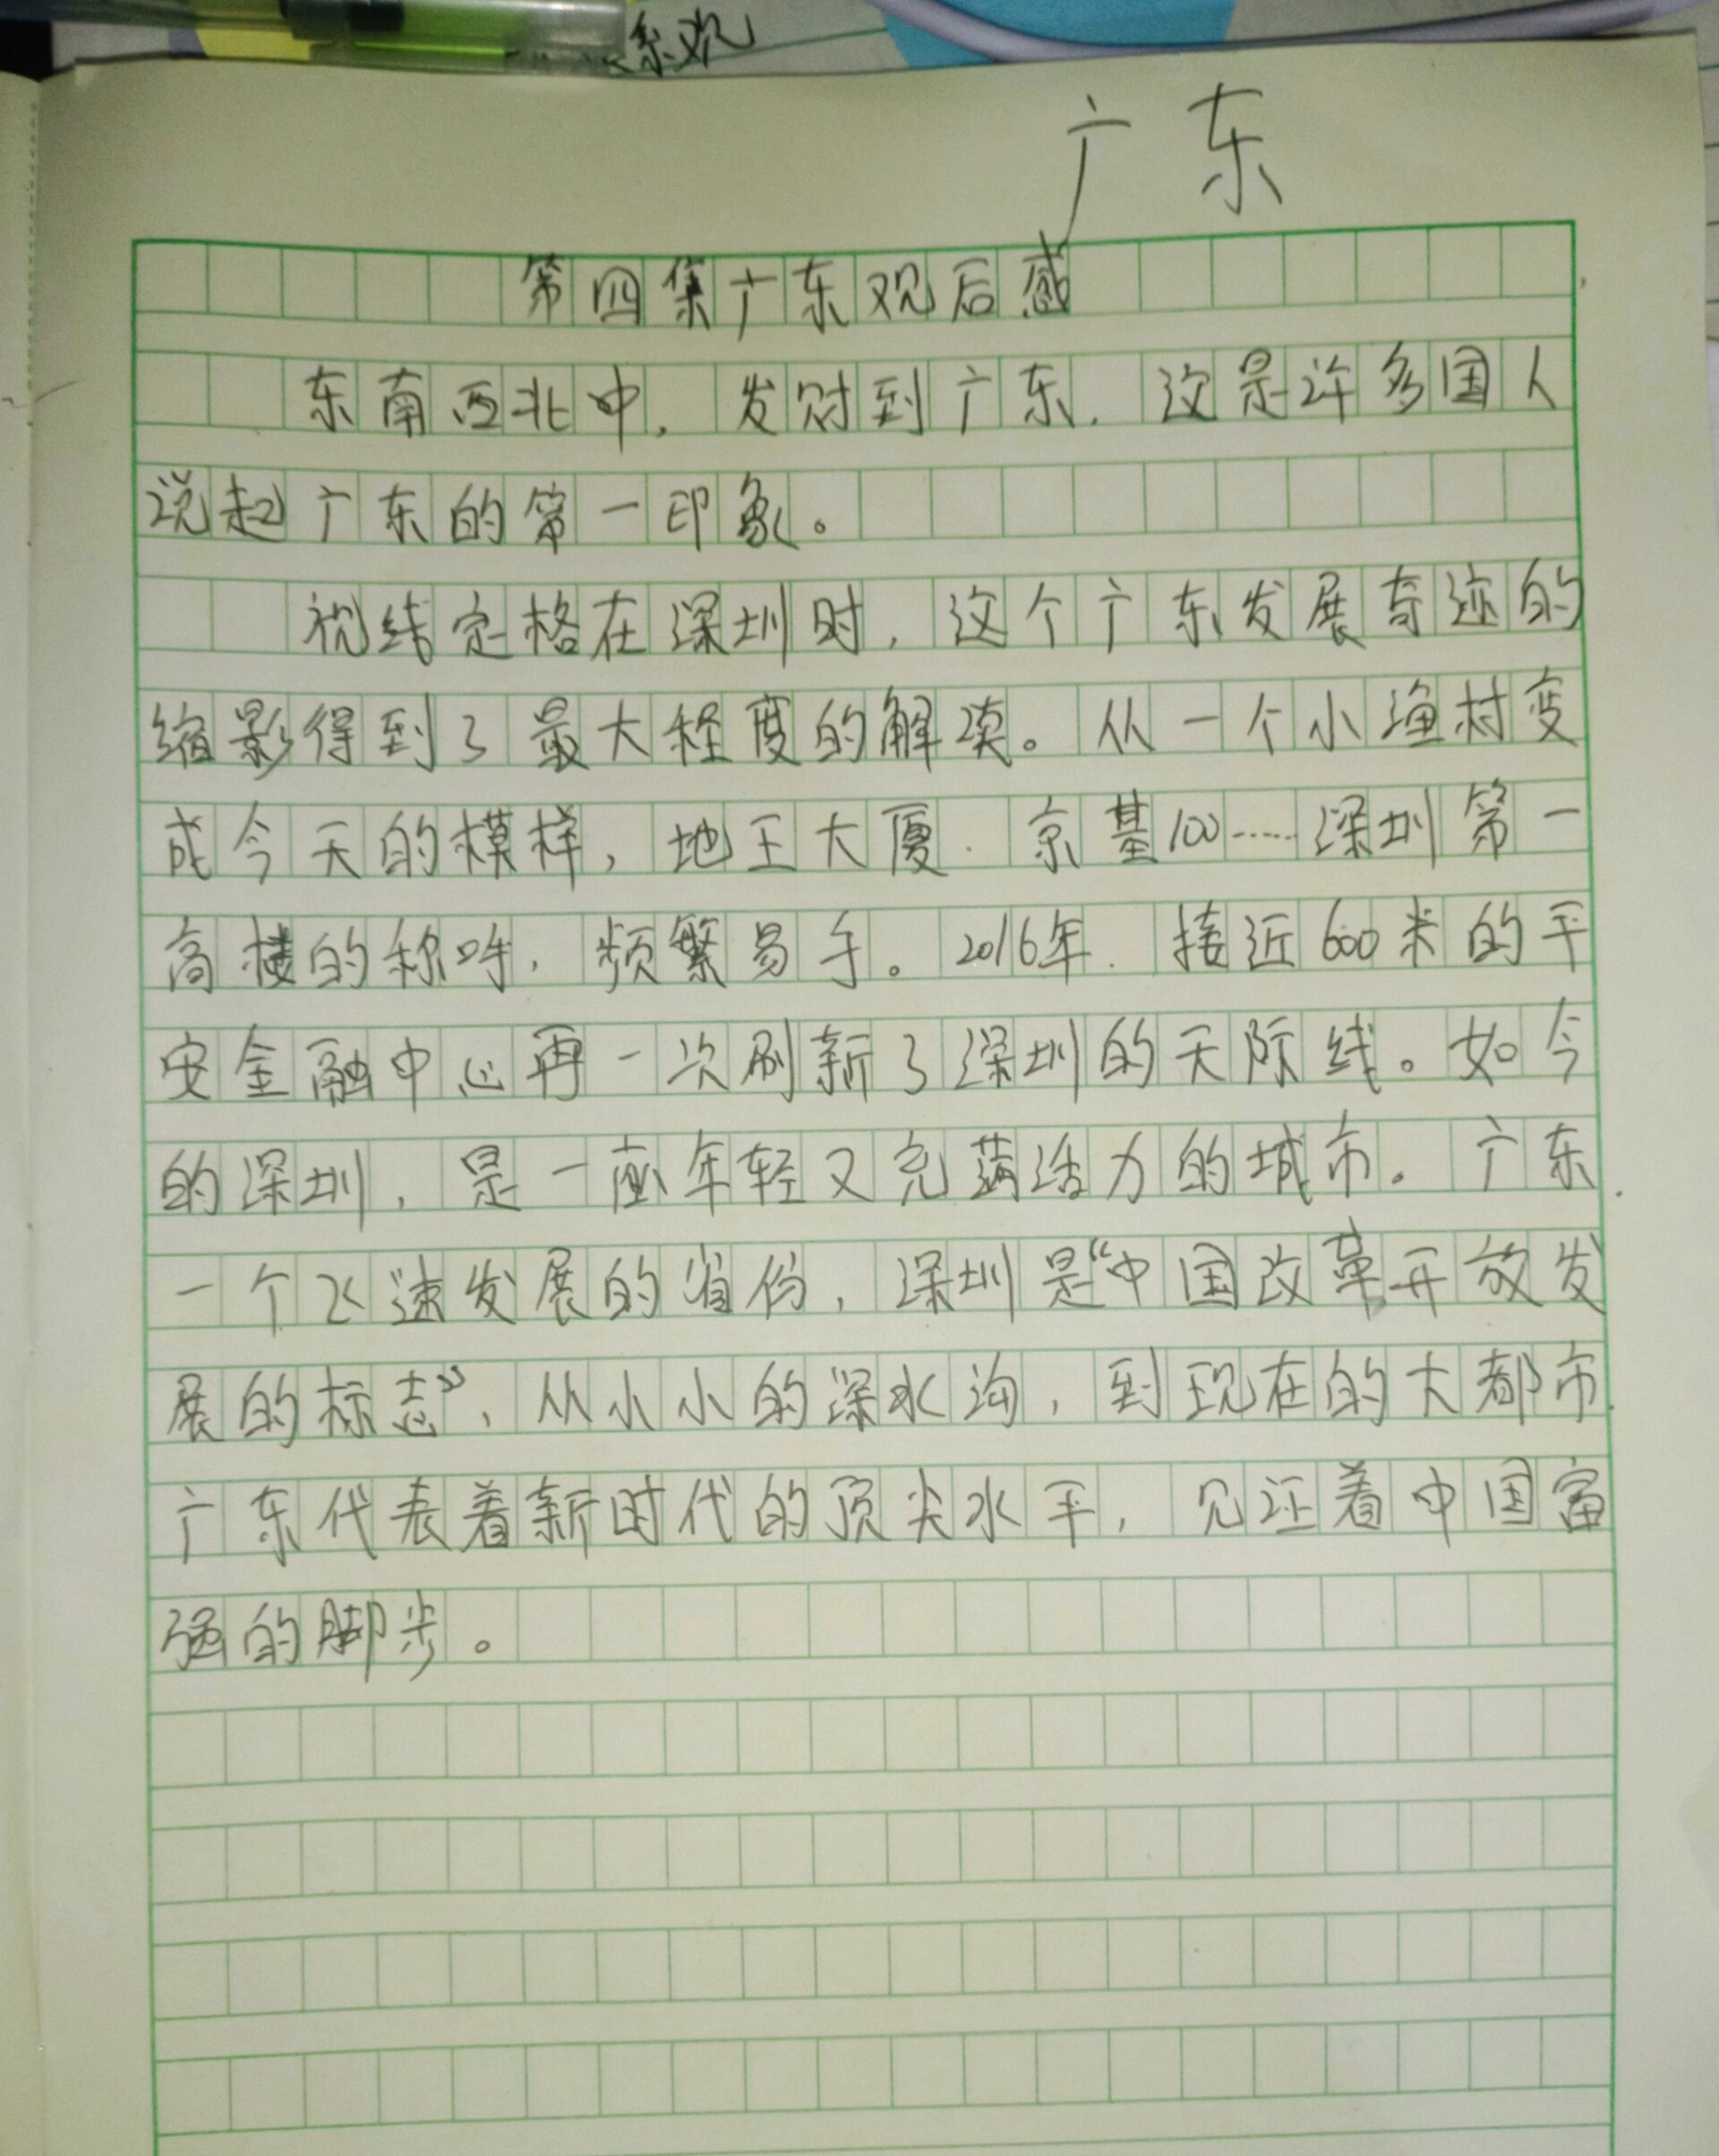 广东
第四集广东观后感
东南西北中，发财到广东，这是许多国人
说起广东的第一印象。
视线定格在深圳时，这个广东发展奇迹的
缩影得到了最大程度的解读。从一个小渔村变
成今天的模样，地王大厦、京基100……深圳第一
高楼的称呼，频繁易手。2016年，接近600米的平
安金融中心再一次刷新了深圳的天际线。如今
的深圳，是一座年轻又充满活力的城市。广东
一个飞速发展的省份，深圳是“中国改革开放发
展的标志”，从小小的深水沟，到现在的大都市
广东代表着新时代的顶尖水平，见证着中国富
强的脚步。